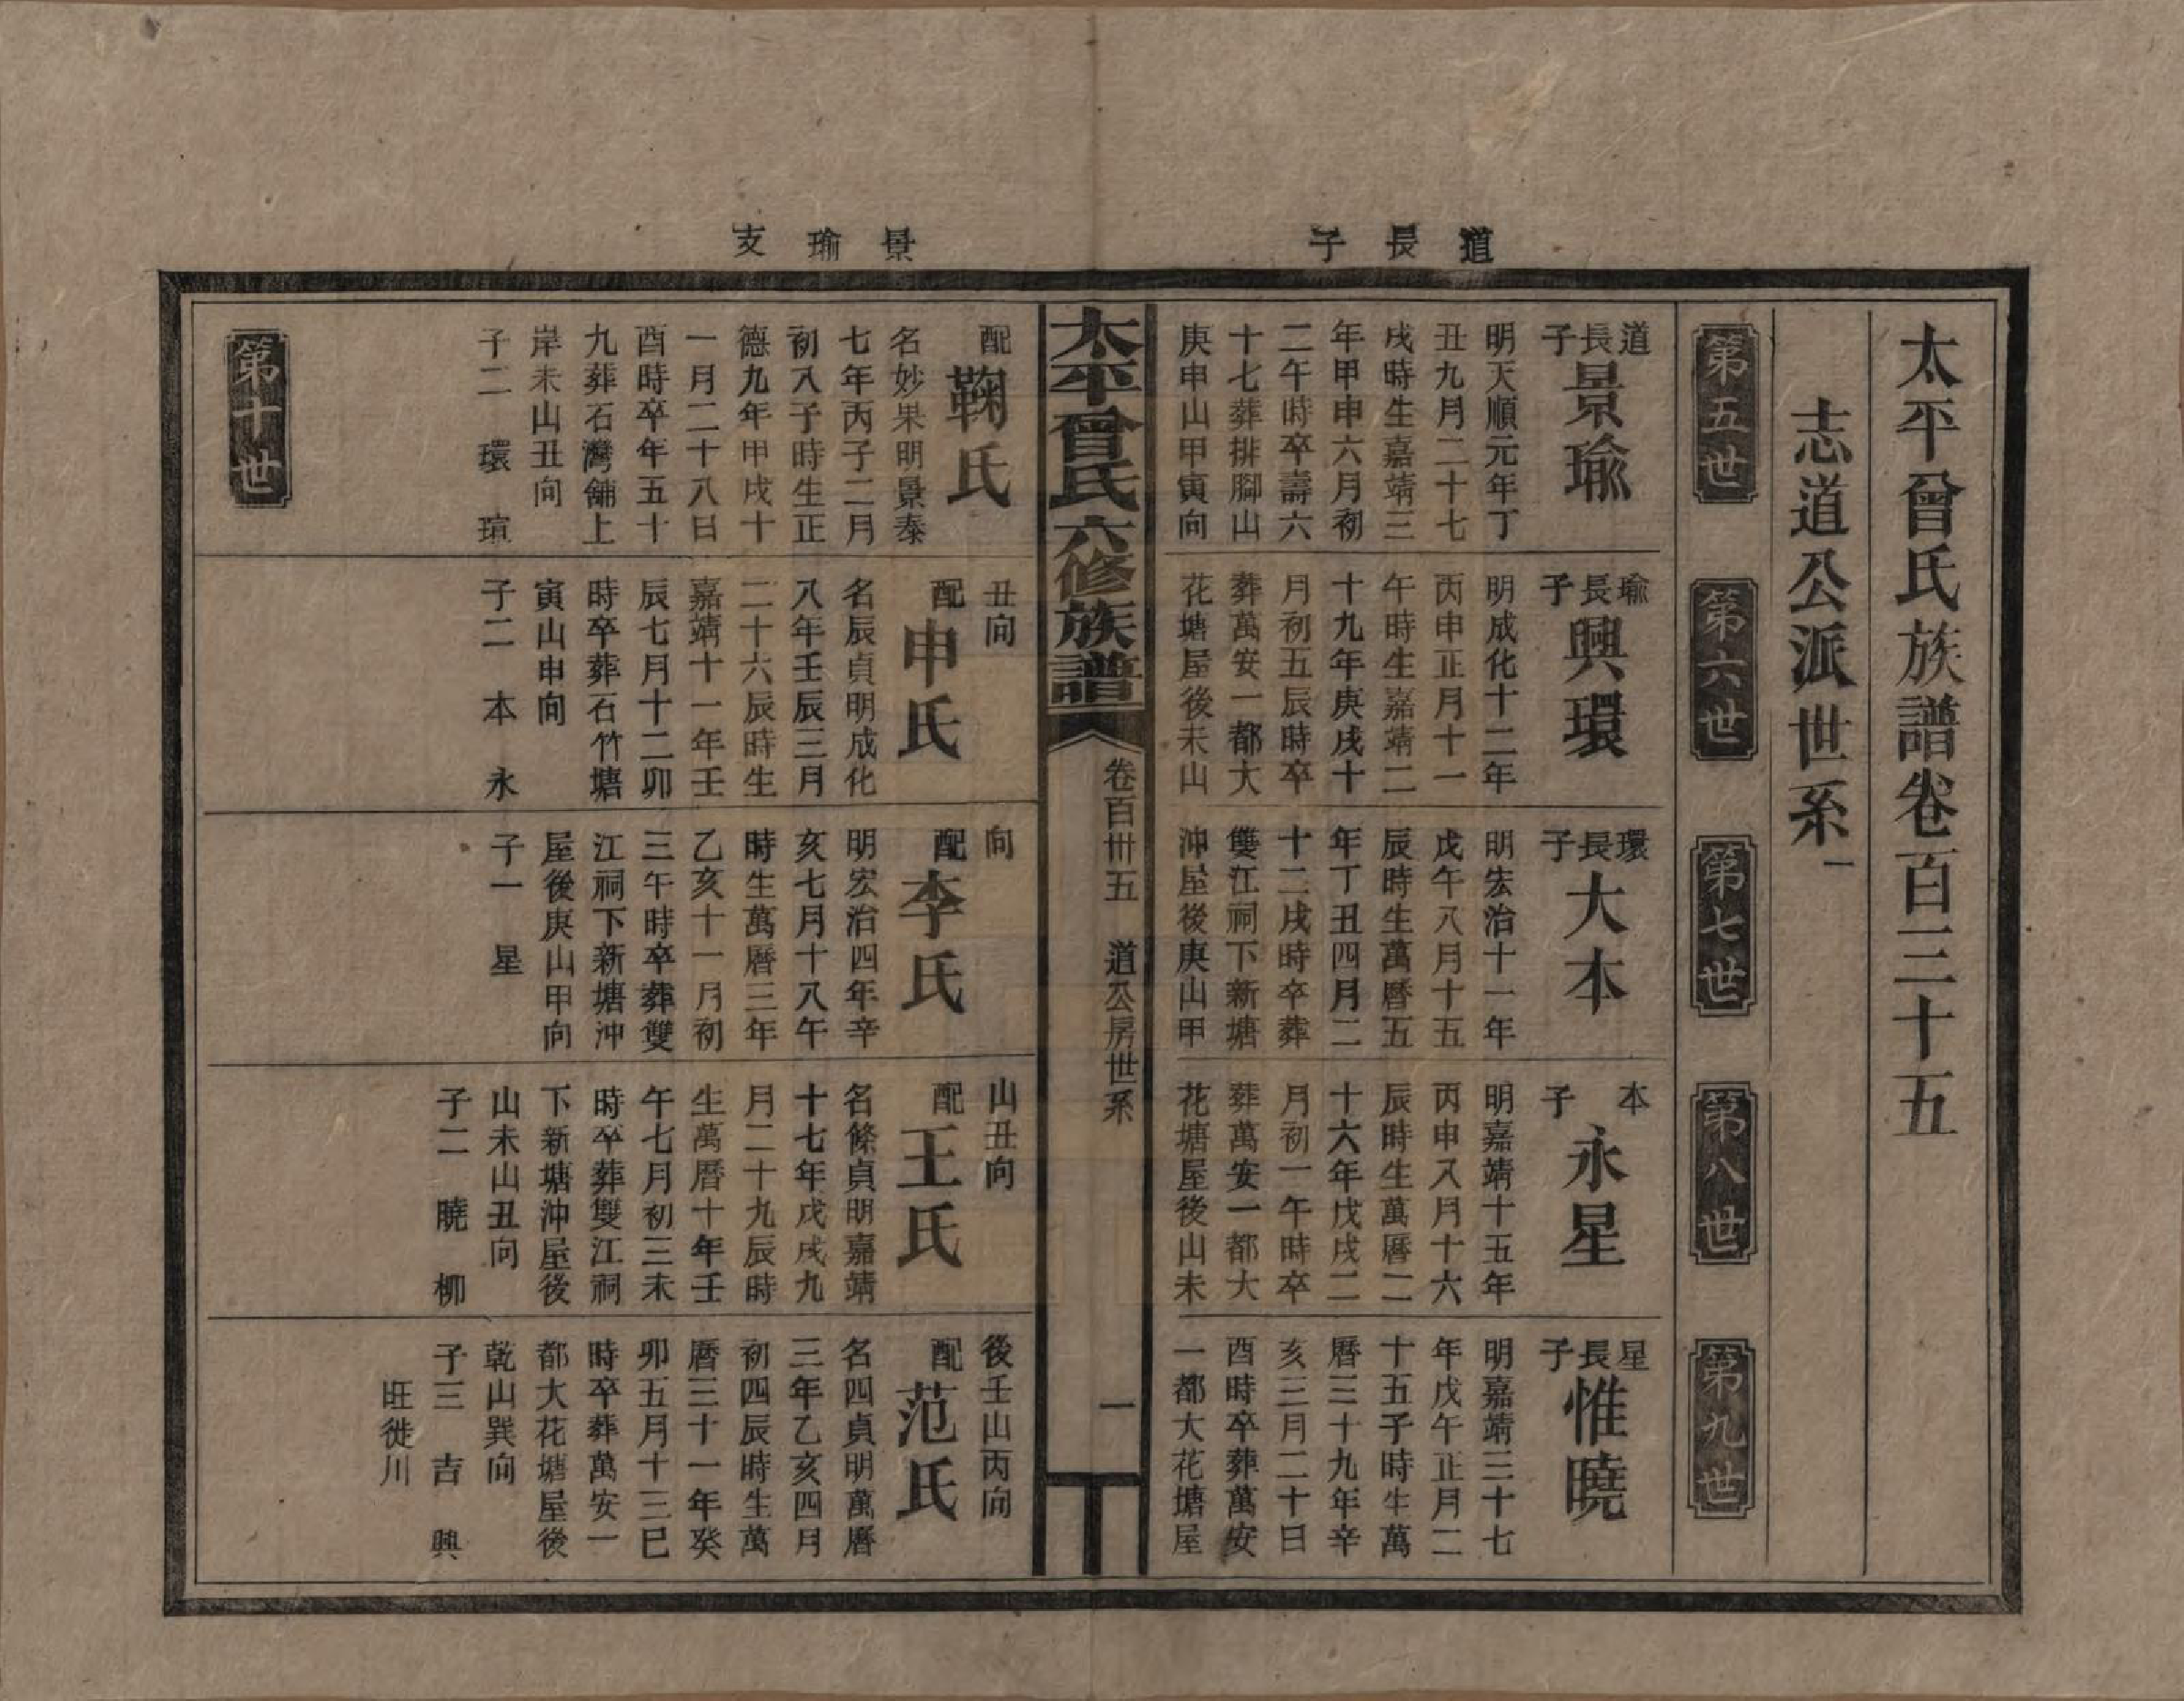 道長子
太平曾氏族譜卷百三十五
志道公派世系一
第五世
第六世
第七世
第八世
第九世
道長子
景瑜
明天順元年丁
丑九月二十七
戌時生嘉靖三
年甲申六月初
二午時卒壽六
十七葬排腳山
庚申山甲寅向
瑜長子
興環
明成化十二年
丙申正月十一
午時生嘉靖二
十九年庚戌十
月初五辰時卒
葬萬安一都大
花塘屋後未山
環長子
大本
明宏治十一年
戊午八月十五
辰時生萬曆五
年丁丑四月二
十二戌時卒葬
雙江祠下新塘
沖屋後庚山甲
本子
永星
明嘉靖十五年
丙申八月十六
辰時生萬曆二
十六年戊戌二
月初一午時卒
葬萬安一都大
花塘屋後山未
星長子
惟曉
明嘉靖三十七
年戊午正月二
十五子時生萬
曆三十九年辛
亥三月二十日
酉時卒葬萬安
一都大花塘屋
太平曾氏六修族譜
卷百卅五 道公房世系
一
景瑜支
配
鞠氏
名妙果明景泰
七年丙子二月
初八子時生正
德九年甲戌十
一月二十八日
酉時卒年五十
九葬石灣舖上
岸未山丑向
子二 環 瑄
丑向
配
申氏
名辰貞明成化
八年壬辰三月
二十六辰時生
嘉靖十一年壬
辰七月十二卯
時卒葬石竹塘
寅山申向
子二 本 永
向
配
李氏
明宏治四年辛
亥七月十八午
時生萬曆三年
乙亥十一月初
三午時卒葬雙
江祠下新塘沖
屋後庚山甲向
子一 星
山丑向
配
王氏
名條貞明嘉靖
十七年戊戌九
月二十九辰時
生萬曆十年壬
午七月初三未
時卒葬雙江祠
下新塘沖屋後
山未山丑向
子二 曉 柳
後壬山丙向
配
范氏
名四貞明萬曆
三年乙亥四月
初四辰時生萬
曆三十一年癸
卯五月十三巳
時卒葬萬安一
都大花塘屋後
乾山巽向
子三 吉 興
旺徙川
第十世